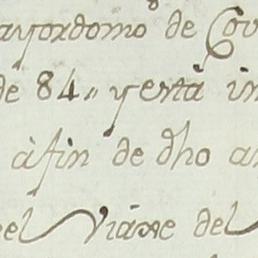 ayordomo de Cov
de 84,, y està in
à fin de dho a
el Viàxe del